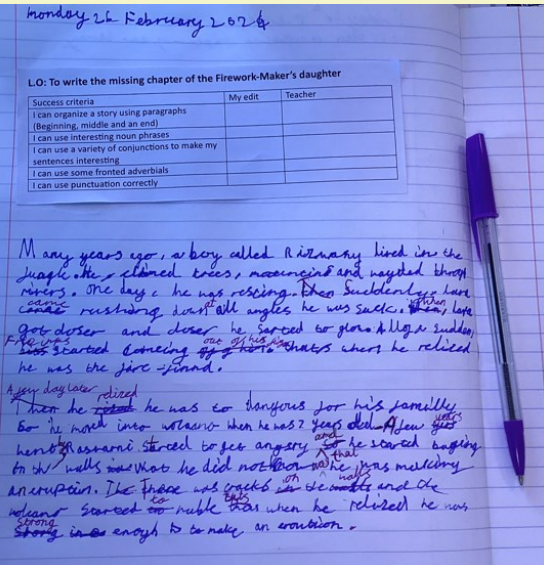 Monday 26 February 2024
L.O: To write the missing chapter of the Firework-Maker's daughter
Success criteria My edit Teacher
I can organize a story using paragraphs
(Beginning, middle and an end)
I can use interesting noun phrases
I can use a variety of conjunctions to make my
sentences interesting
I can use some fronted adverbials
I can use punctuation correctly
Many years ago, a boy called Rizmany lived in the
Juagle. He climed trees, and wayded throgh
rivers. One day, he was rescing. Then Suddenly, lava
came rushing down at all angles he was suck. When, lava
got closer and closer he sarted to glow. All of a sudden,
Fire was started comeing out of his where he relized
he was the fire-jinnd.
A few day later relized
Then he he was to dangous for his familly
So he moved into volcano when he was 7 years old. A few years
started to get angery and he started baging
on the walls what he did not that he was making
an eruption. There was cracks on the walls and the
volcano started to ruble this was when he relized he was
Strong enogh to make an eroubion.